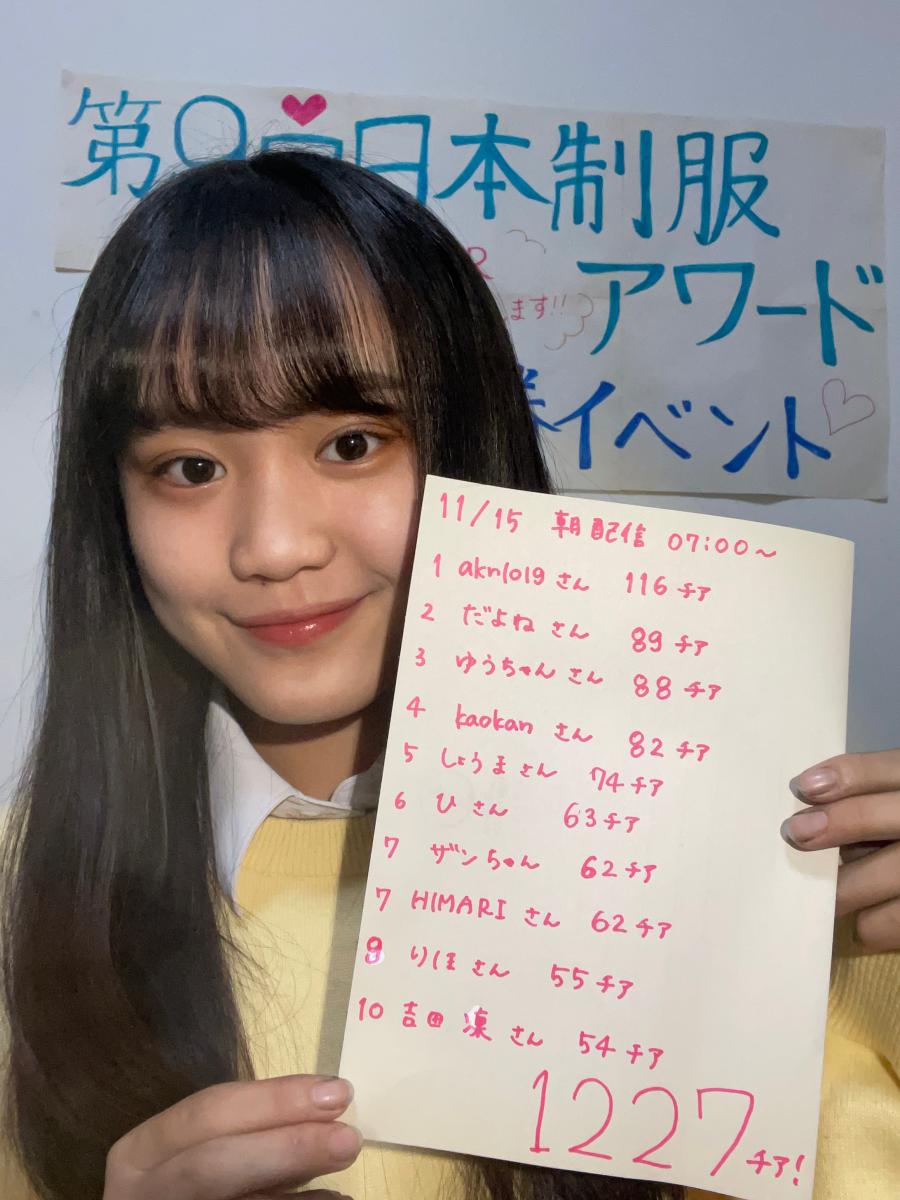 第9回日本制服
アワード
ます!!
イベント
11/15 朝配信 07:00~
1 akn1019さん 116チア
2 だよねさん 89チア
3 ゆうちゃんさん 88チア
4 kaokanさん 82チア
5 しょうまさん 74チア
6 ひさん 63チア
7 ザンちゃん 62チア
7 HIMARIさん 62チア
9 りほさん 55チア
10 吉田 凜さん 54チア
1227チア!